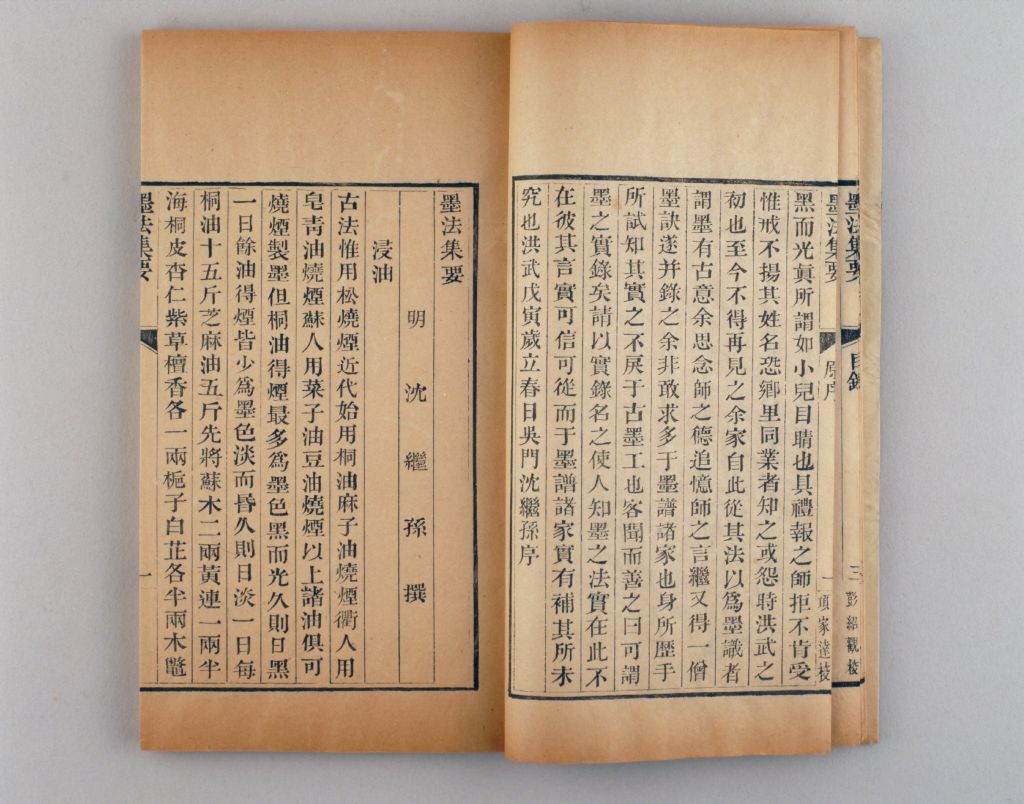 墨法集要 目錄 三 彭紹觀校
墨法集要 原序 一 項家達校
黑而光眞所謂如小兒目睛也具禮報之師拒不肯受
惟戒不揚其姓名恐鄉里同業者知之或怨時洪武之
初也至今不得再見之余家自此從其法以爲墨識者
謂墨有古意余思念師之德追憶師之言繼又得一僧
墨訣遂并錄之余非敢求多于墨譜諸家也身所歷手
所試知其實之不戾于古墨工也客聞而善之曰可謂
墨之實錄矣請以實錄名之使人知墨之法實在此不
在彼其言實可信可從而于墨譜諸家實有補其所未
究也洪武戊寅歲立春日吳門沈繼孫序
墨法集要
明 沈 繼 孫 撰
浸油
古法惟用松燒煙近代始用桐油麻子油燒煙衢人用
皂靑油燒煙蘇人用菜子油豆油燒煙以上諸油俱可
燒煙製墨但桐油得煙最多爲墨色黑而光久則日黑
一日餘油得煙皆少爲墨色淡而昏久則日淡一日每
桐油十五斤芝麻油五斤先將蘇木二兩黃連一兩半
海桐皮杏仁紫草檀香各一兩梔子白芷各半兩木鼈
墨法集要 一